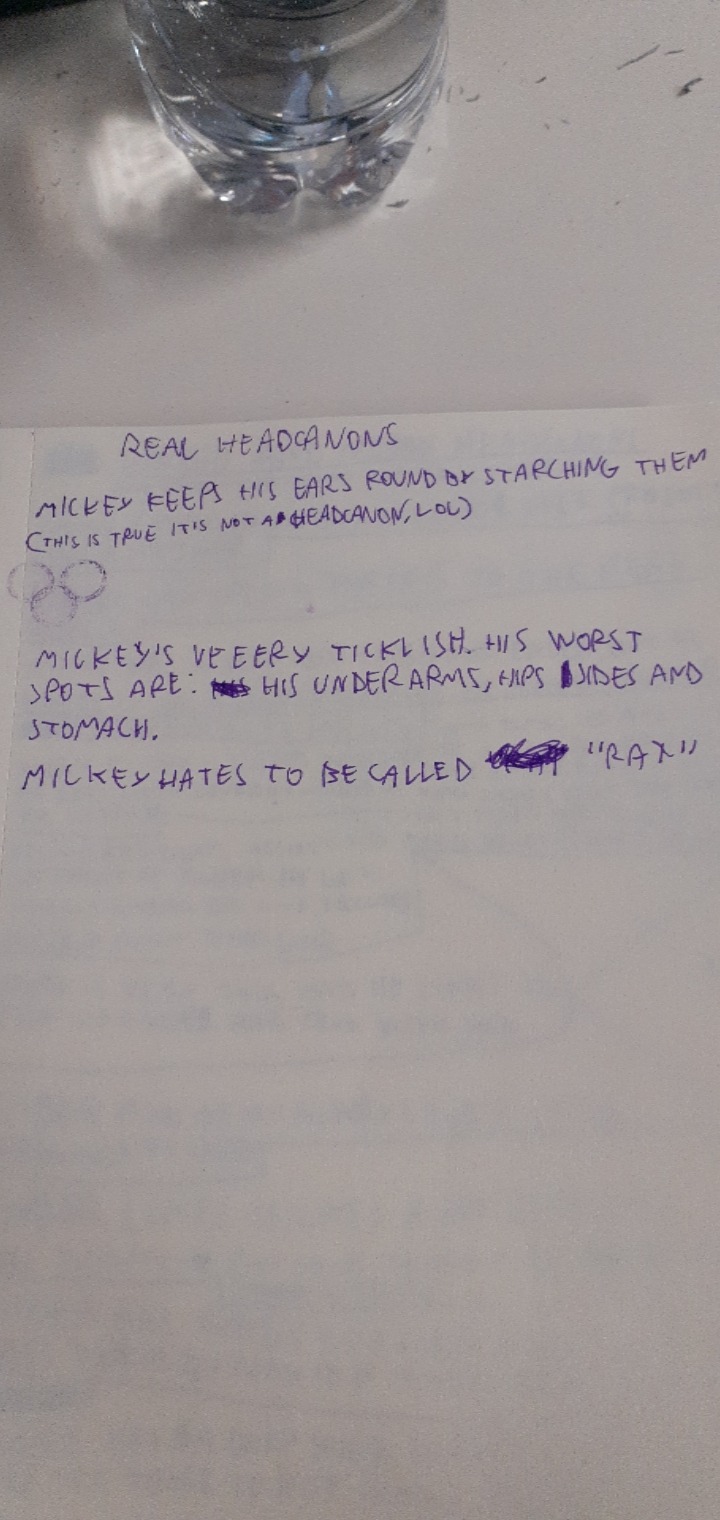 REAL HEADCANONS
MICKEY KEEPS HIS EARS ROUND BY STARCHING THEM
(THIS IS TRUE IT IS NOT A HEADCANON, LOL)
MICKEY'S VEEERY TICKLISH. HIS WORST
SPOTS ARE: HIS UNDERARMS, HIPS SIDES AND
STOMACH.
MICKEY HATES TO BE CALLED "RAX"